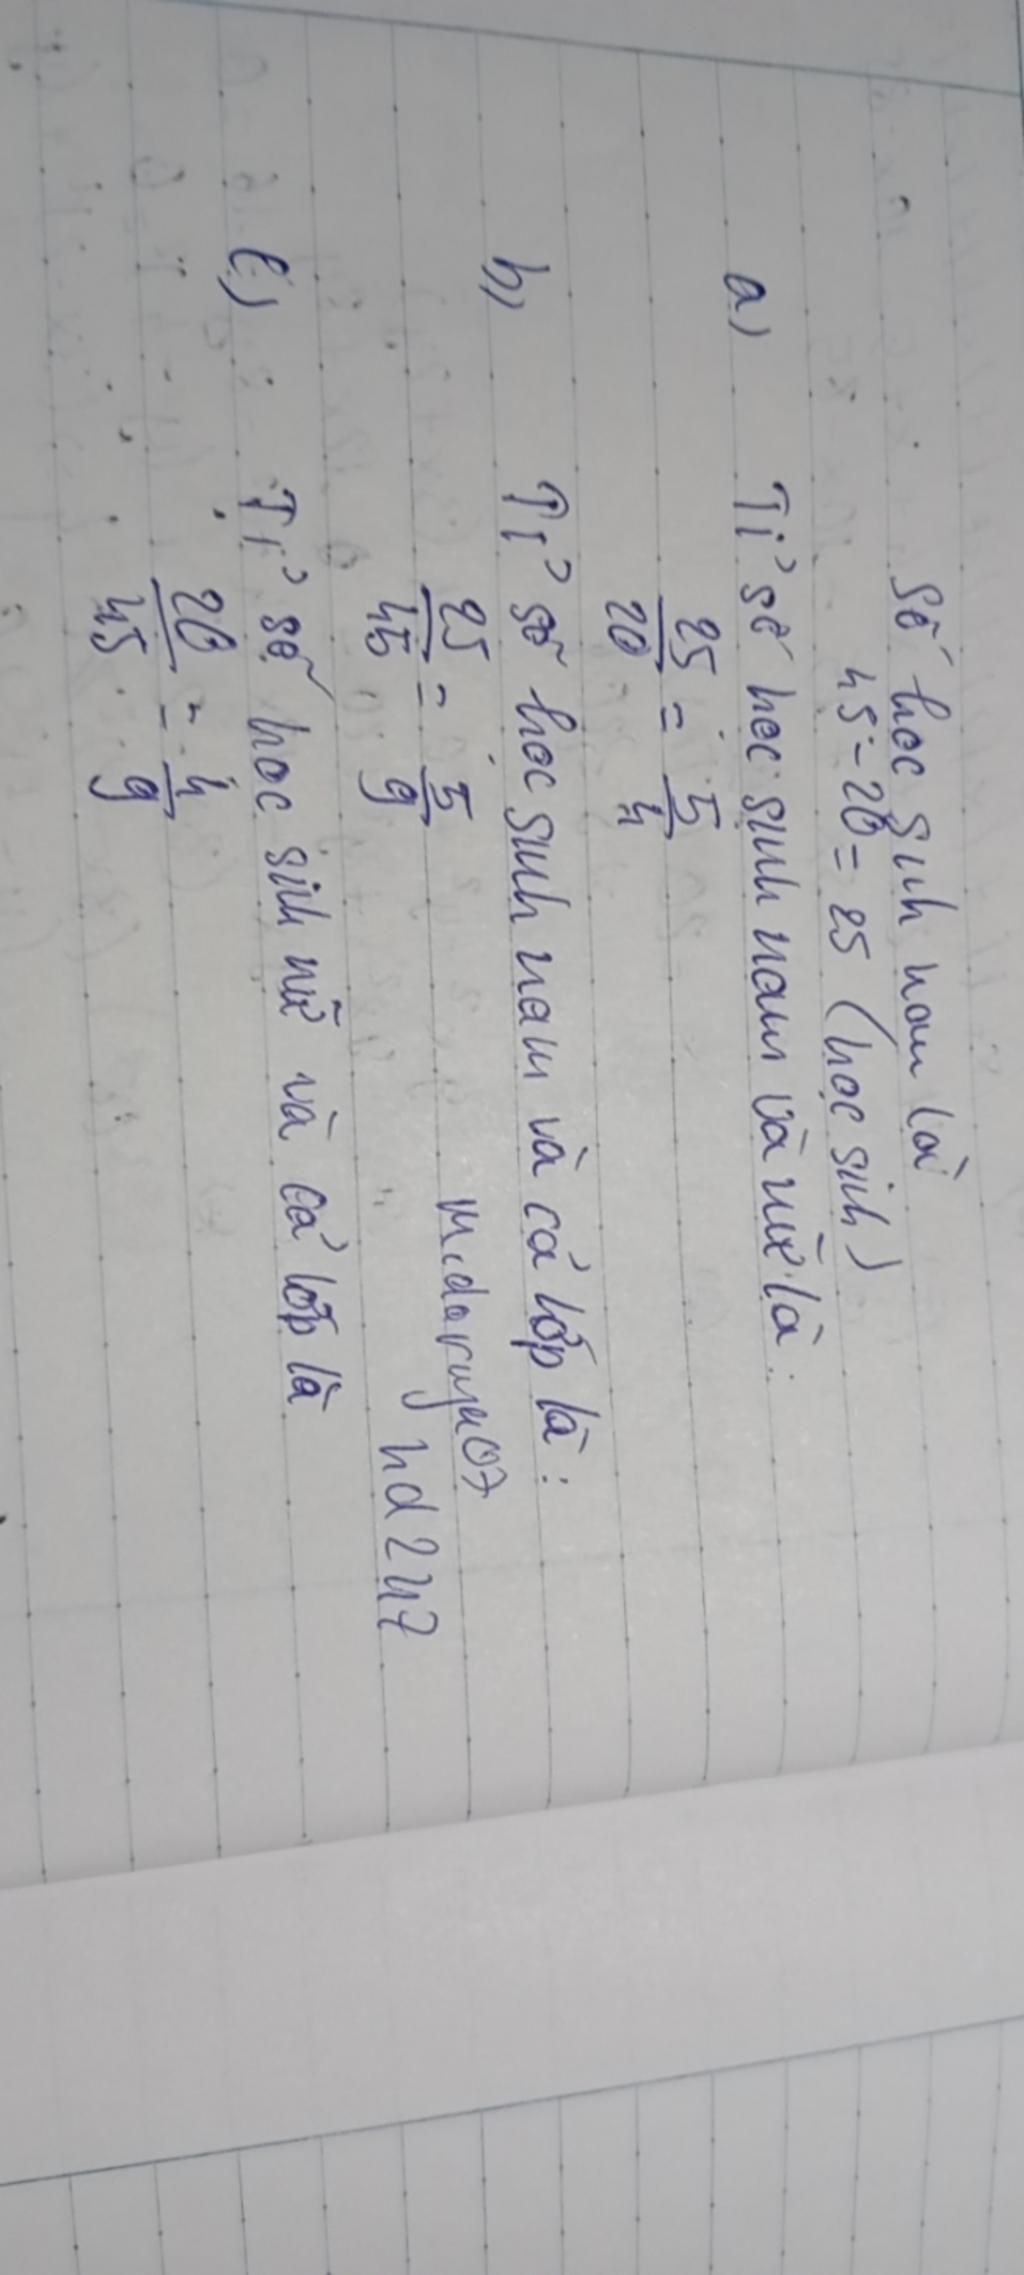 Số học sinh nam là
45 - 20 = 25 (học sinh)
a) Tỉ số học sinh nam và nữ là:
25/20 = 5/4
b) Tỉ số học sinh nam và cả lớp là:
25/45 = 5/9
Midoruya07
hd247
c) Tỉ số học sinh nữ và cả lớp là
20/45 = 4/9